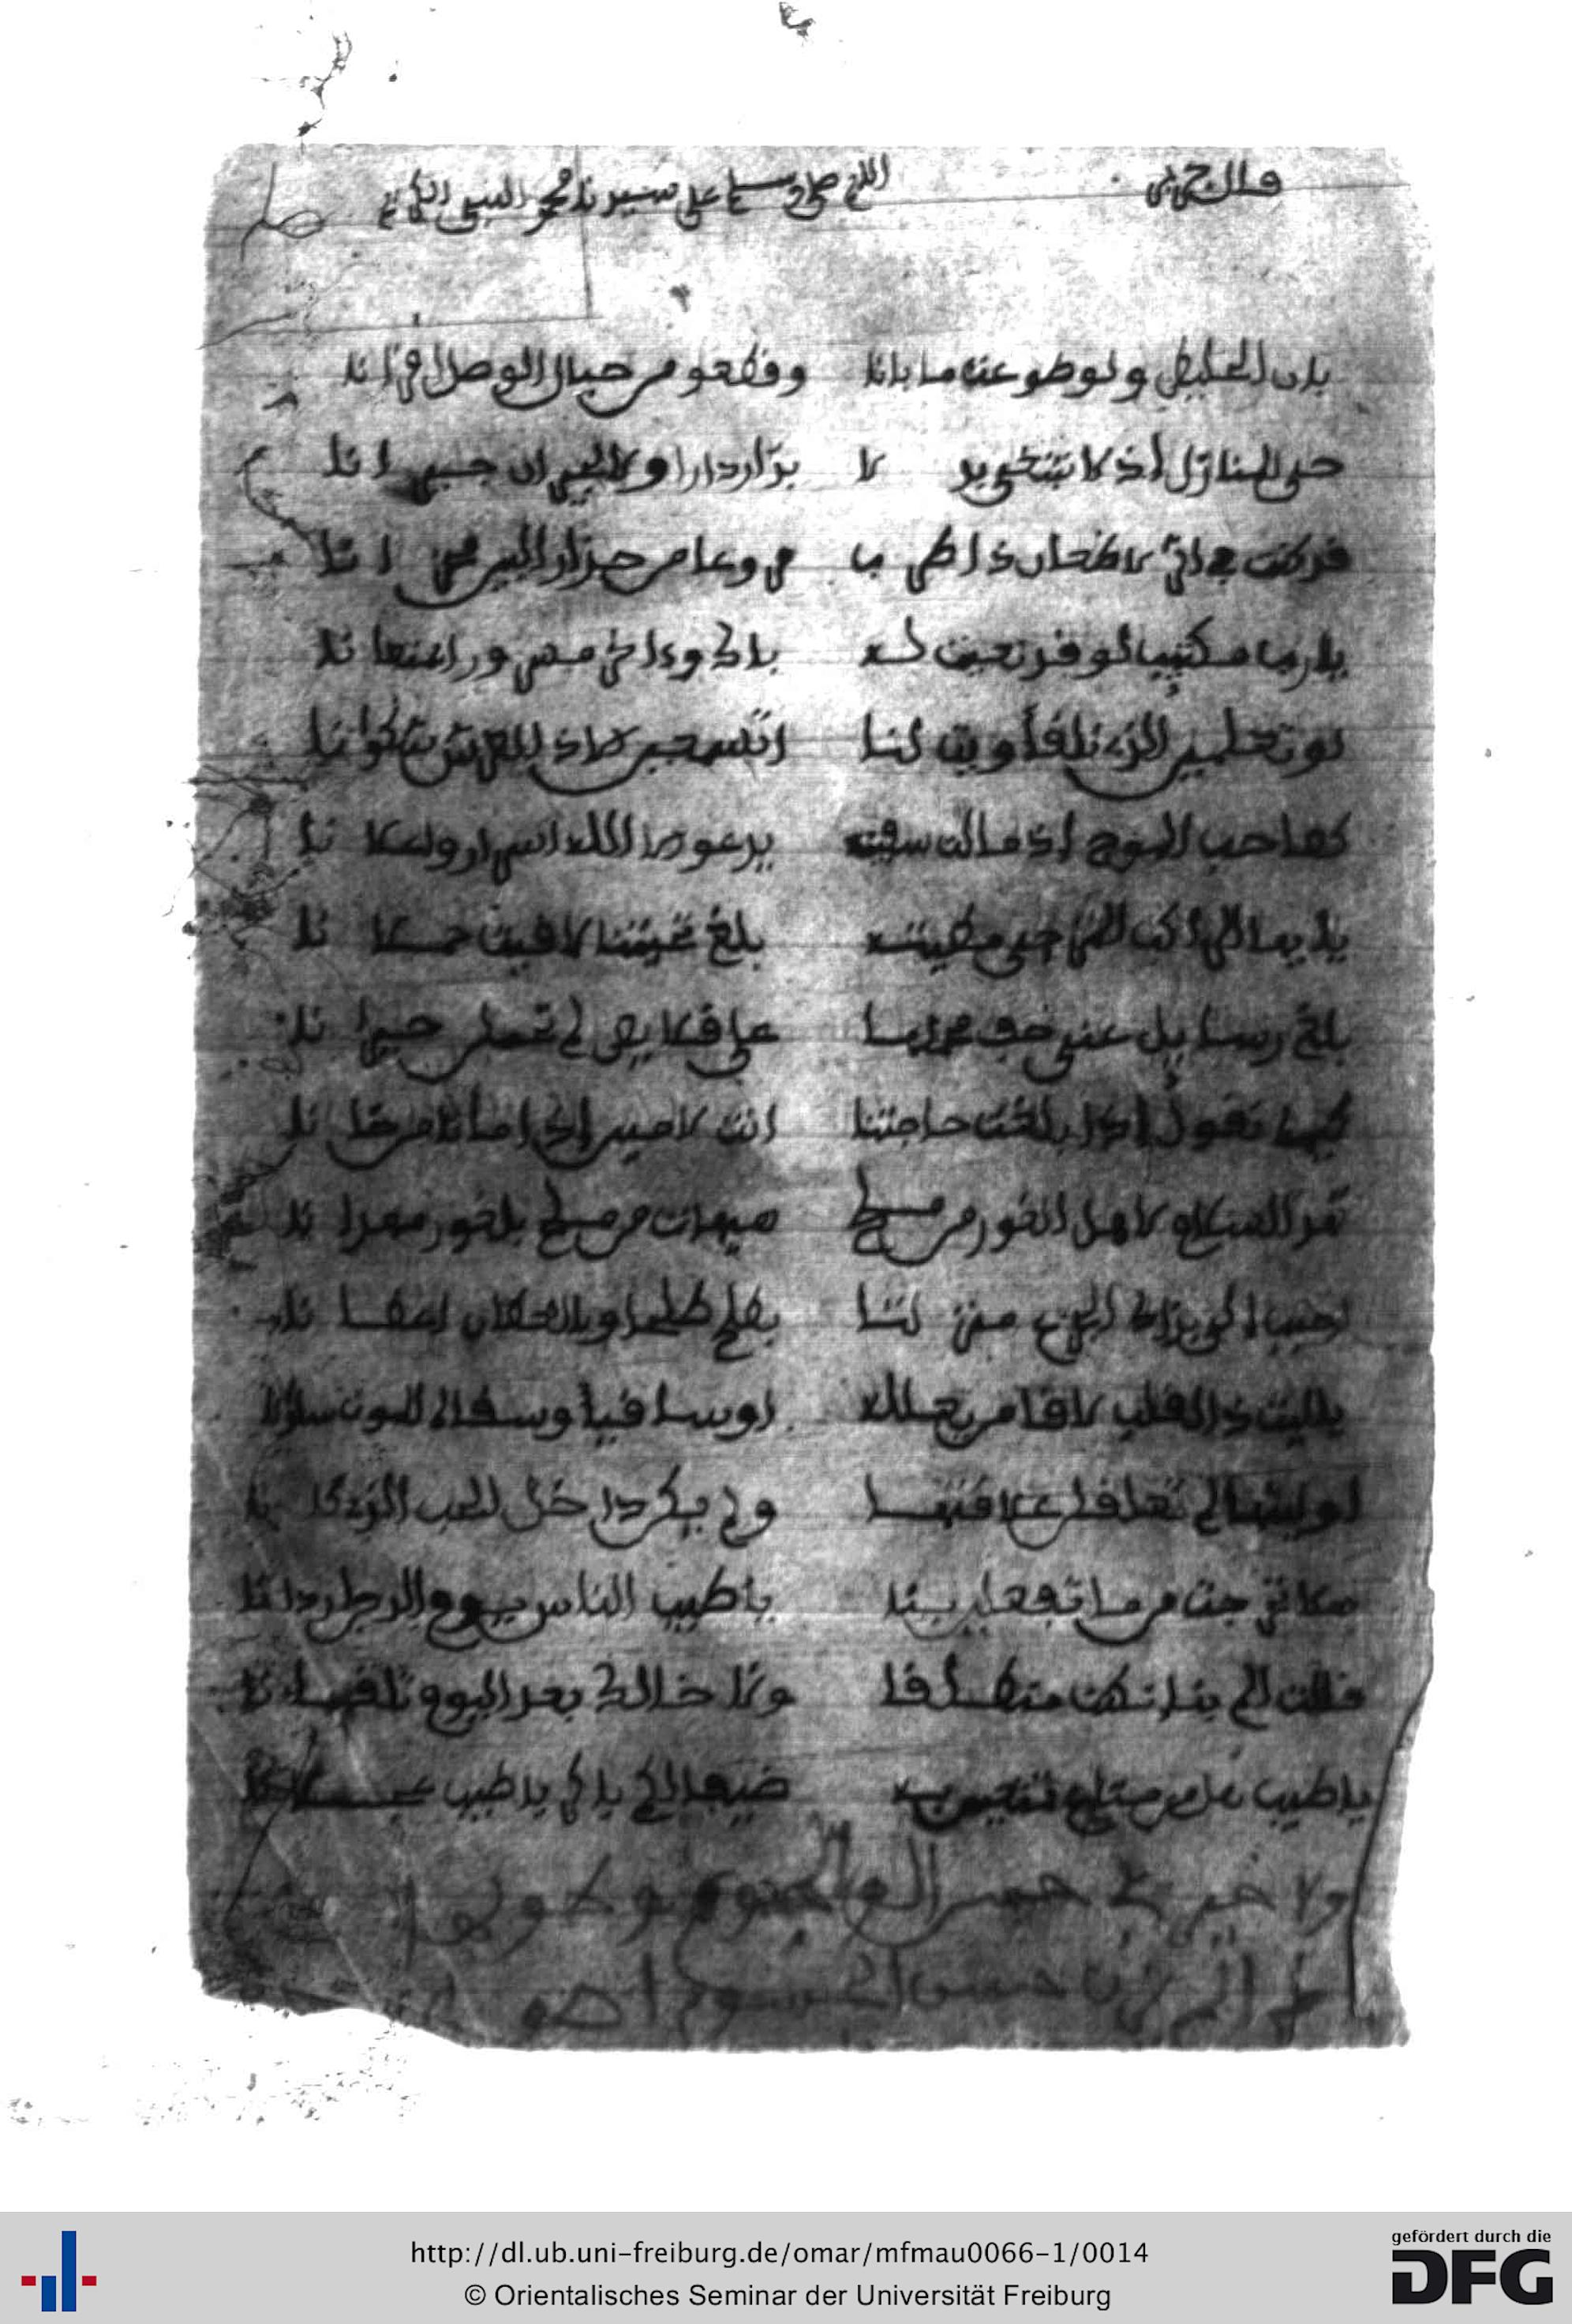 قال جرير اللهم صل وسلم على سيدنا محمد النبي الكريم
بان الخليط ولو طوعت ما بانا وقطعو من حبال الوصل اقرانا
حي المنازل اذ لا نبتغي بد لا بدار دارا ولا الجيران جيرانا
قد كنت في اثر الاظعان ذا طر با مروعا من حذار البين محزانا
يا رب مكتيب لو قد نعيت له باك وءاخر مسرور بمنعانا
لو تعلمين الذي نلقا أويت لنا
كصاحب الموج اذ مالت سفينته يدعو الى الله اسرارا واعلانا
يا ايها الراكب المزجي مطيته بلغ تحيتنا لاقيت حملانا
بلغ رسايل عنا خف محملها على قلايص لم تحملن حيرانا
كيما تقول اذا بلغت حاجتنا انت الامين اذا ما خانا
تهد السلام لاهل الغور من ملح هيهات من ملح بالغور مهدانا
احبب الي بذاك الجزع منزلنا بالطلح طلحا وبالاعطان اعطانا
يا ليت ذا القلب لاقا من يعلله او ساقيا وسقاه اليوم سلوانا
او ليتها لم تعلقنا علاقتها ولم يكن داخل الحب الذي كانا
هلا تحرجت مما تفعلين بنا يا طيب الناس يوم الدجن اردانا
قالت الم بنا ان كنت منطلقا ولا خالك بعد اليوم تلقانا
يا طيب هل من متاع تمتعين به ضيفا لكم باكر يا طيب عجلانا
http://dl.ub.uni-freiburg.de/omar/mfmau0066-1/0014
© Orientalisches Seminar der Universität Freiburg
gefördert durch die
DFG